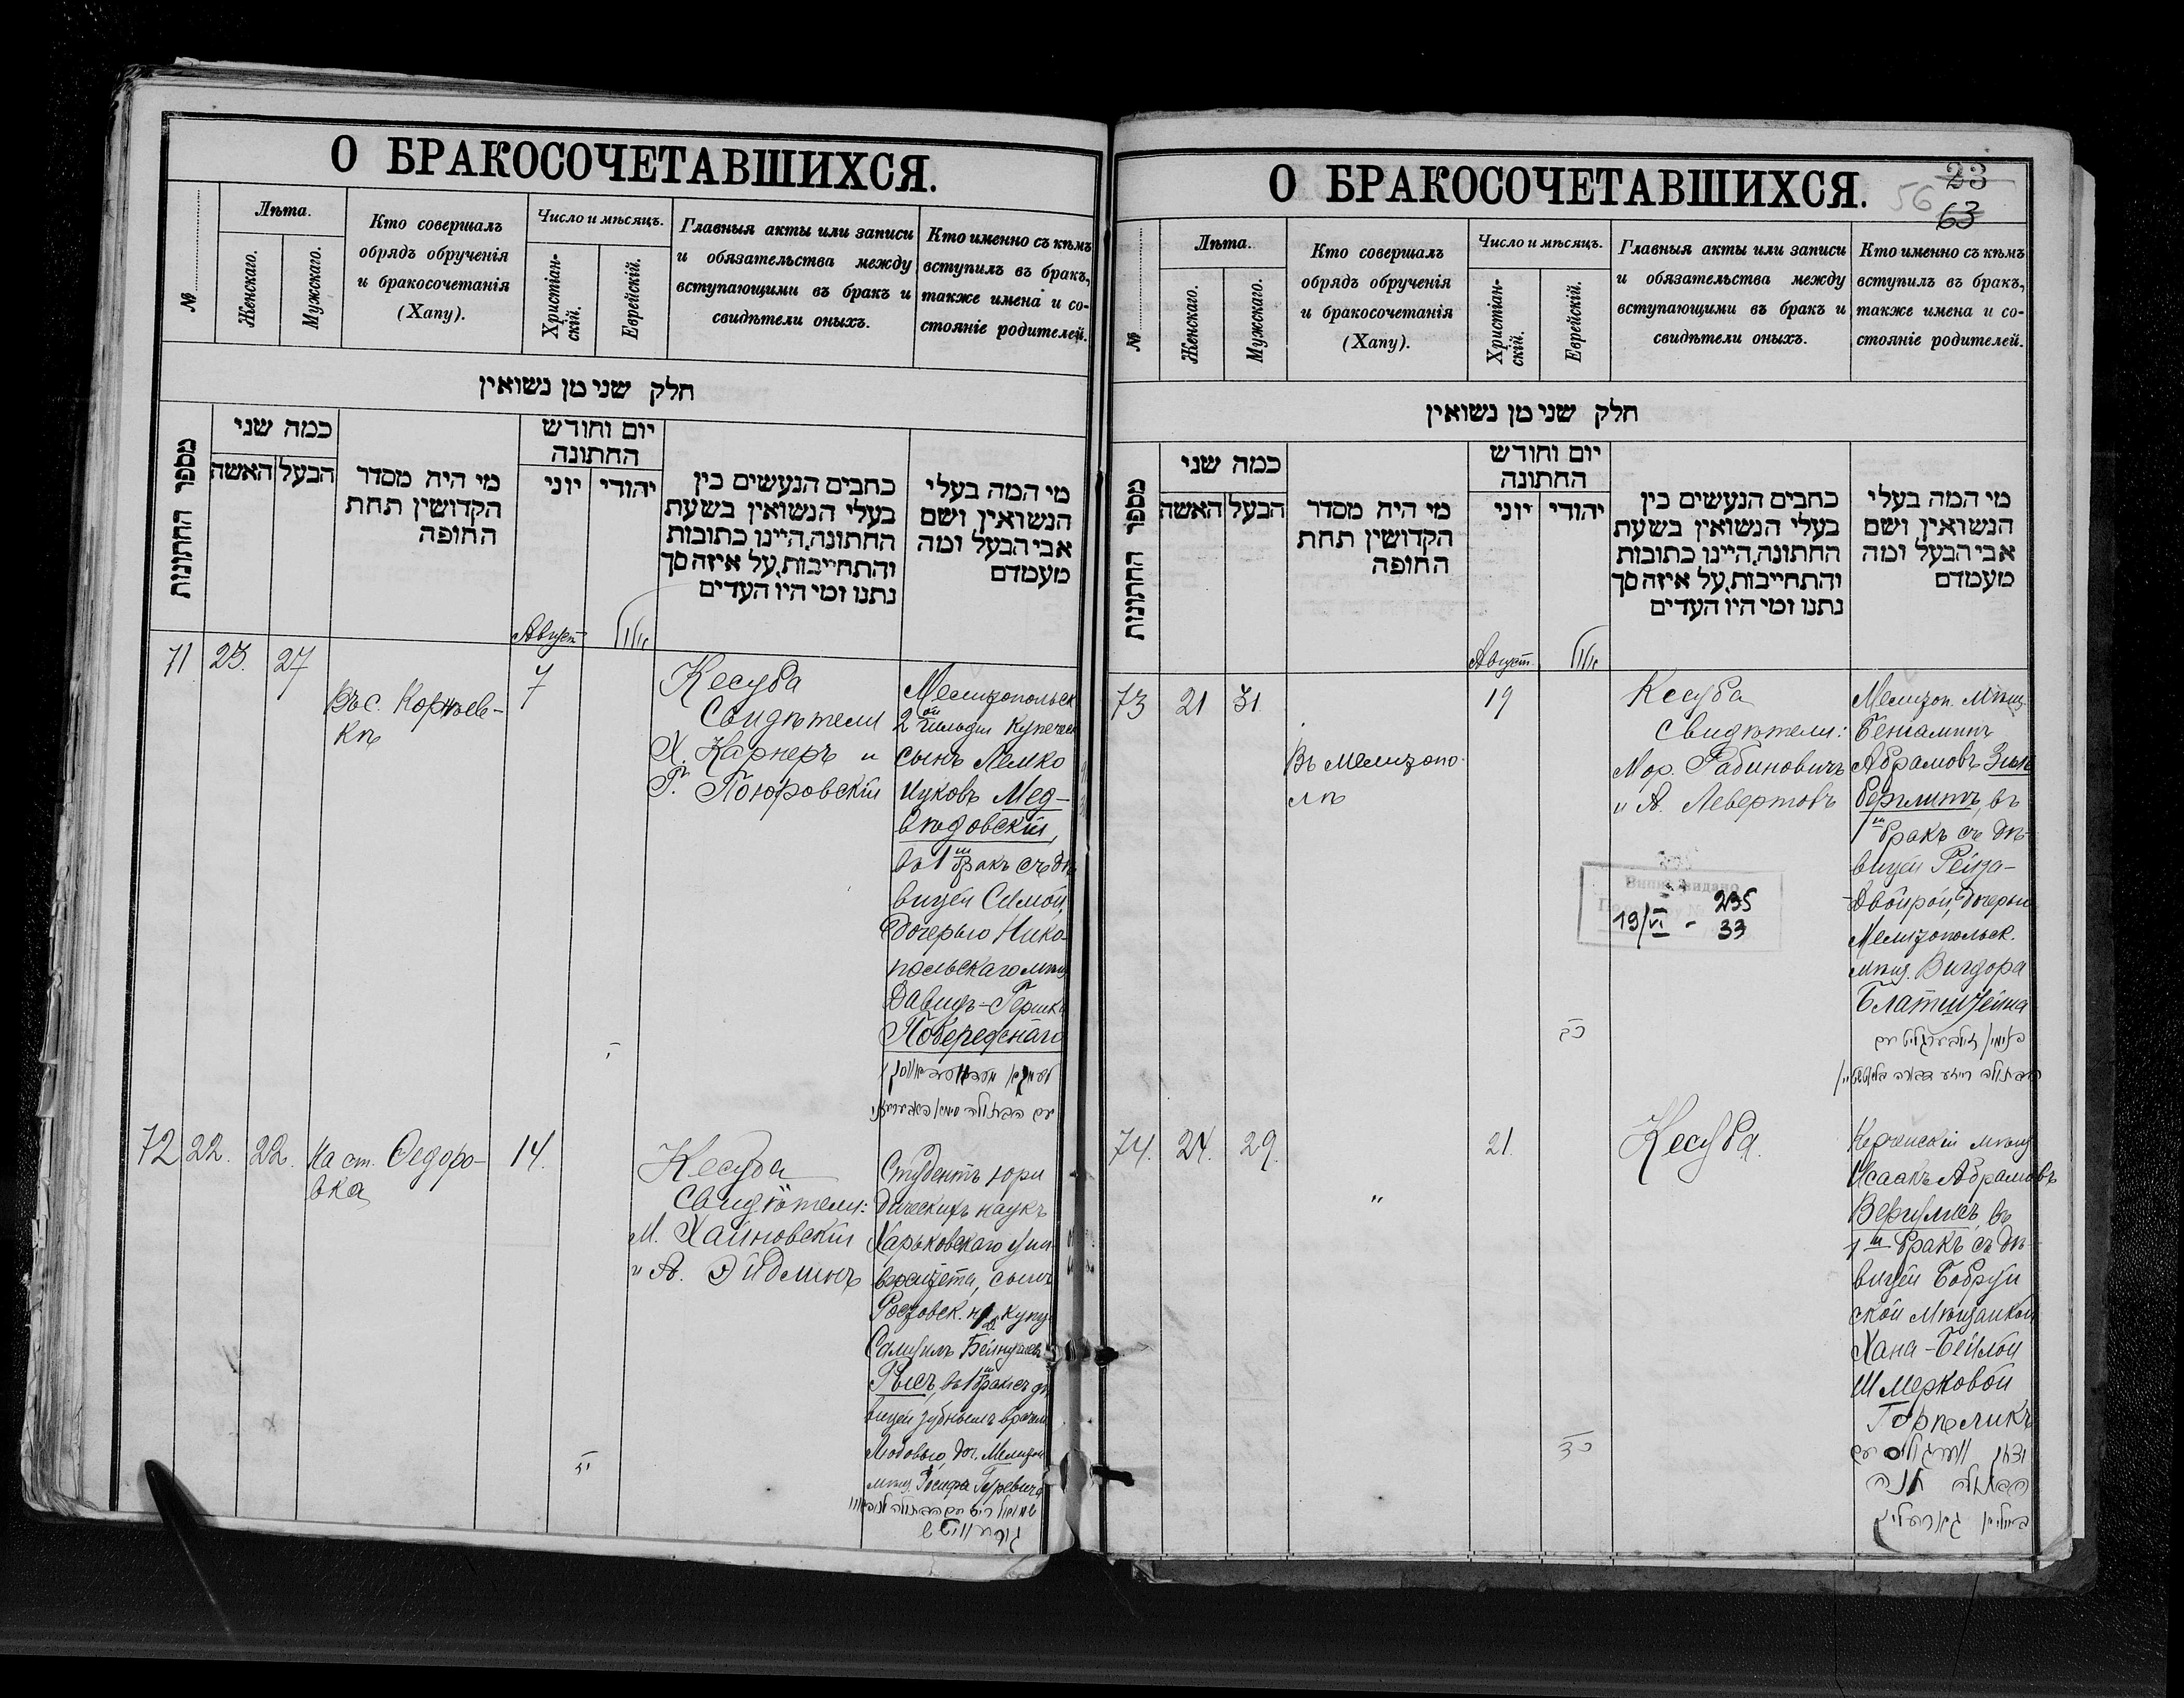 О БРАКОСОЧЕТАВШИХСЯ.
№
Лѣта.
Женскаго.
Мужскаго.
Кто совершалъ
обрядъ обрученія
и бракосочетанія
(Хапу).
Число и мѣсяцъ.
Христіан-
скій.
Еврейскій.
Главныя акты или записи
и обязательства между
вступающими въ бракъ и
свидѣтели оныхъ.
Кто именно съ кѣмъ
вступилъ въ бракъ,
также имена и со-
стояніе родителей.
חלק שני מן נשואין
מספר החתונות
כמה שני
האשה
הבעל
מי היה מסדר
הקדושין תחת
החופה
יום וחודש
החתונה
יוני
יהודי
כתבים הנעשים בין
בעלי הנשואין בשעת
החתונה, היינו כתובות
והתחייבות, על איזה סך
נתנו ומי היו העדים
מי המה בעלי
הנשואין ושם
אבי הבעל ומה
מעמדם
Август
אלול
71
23.
27
Въ с. Корнѣев-
кѣ
7
י
Кесуба
Свидѣтели
Х. Карнеръ и
Г. Поюровскій
Мелитопольск
2ой гильдіи купеческ
сынъ Лемко
Ицковъ Мед-
вѣдовскій,
въ 1й бракъ съ дѣ
вицей Симой,
дочерью Нико-
польскаго мѣщ
Давидъ-Гершка
Побережнаго
עם הבתולה סימא
72
22.
22.
На ст. Федоро-
вка
14.
יז
Кесуба
Свидѣтели:
М. Хайновскій
и А. Эйдлинъ
Студентъ юри
дическихъ наукъ
Харьковскаго Уни
верситета, сынъ
Ростовск. н/Д купц
Самуилъ
Рысъ, въ 1й бракъ съ дѣ
вицей зубнымъ врачемъ
Любовью, доч. Мелитоп
мѣщ. Іосифа Гуревича
שמואל ריס עם הבתולה
גורעוויטש
О БРАКОСОЧЕТАВШИХСЯ.
23
56
63
№
Лѣта.
Женскаго.
Мужскаго.
Кто совершалъ
обрядъ обрученія
и бракосочетанія
(Хапу).
Число и мѣсяцъ.
Христіан-
скій.
Еврейскій.
Главныя акты или записи
и обязательства между
вступающими въ бракъ и
свидѣтели оныхъ.
Кто именно съ кѣмъ
вступилъ въ бракъ,
также имена и со-
стояніе родителей.
חלק שני מן נשואין
מספר החתונות
כמה שני
האשה
הבעל
מי היה מסדר
הקדושין תחת
החופה
יום וחודש
החתונה
יוני
יהודי
כתבים הנעשים בין
בעלי הנשואין בשעת
החתונה, היינו כתובות
והתחייבות, על איזה סך
נתנו ומי היו העדים
מי המה בעלי
הנשואין ושם
אבי הבעל ומה
מעמדם
Август
אלול
73
21
31.
Въ Мелитопо-
лѣ
19
כב
Кесуба
Свидѣтели:
Мор. Рабиновичъ
и А. Левертовъ
19/VI - 235
33
Мелитоп. мѣщ.
Беніаминъ
Абрамовъ Зиль
берглитъ, въ
1й бракъ съ дѣ-
вицей Рейза-
Двойрой, дочерью
Мелитопольск.
мѣщ. Вигдора
Блатштейна
בנימין זילבערגליט עם
הבתולה רייזע דבורה
74.
24.
29.
"
21.
כד
Кесуба.
Керченскій мѣщ
Исаакъ Абрамовъ
Вергулисъ, въ
1й бракъ съ дѣ-
вицей Бобруй
ской мѣщанкой
Хана-Бейлой
Шмерковой
Горѣликъ
יצחק ווערגוליס עם
הבתולה חנה
ביילא גארעליק